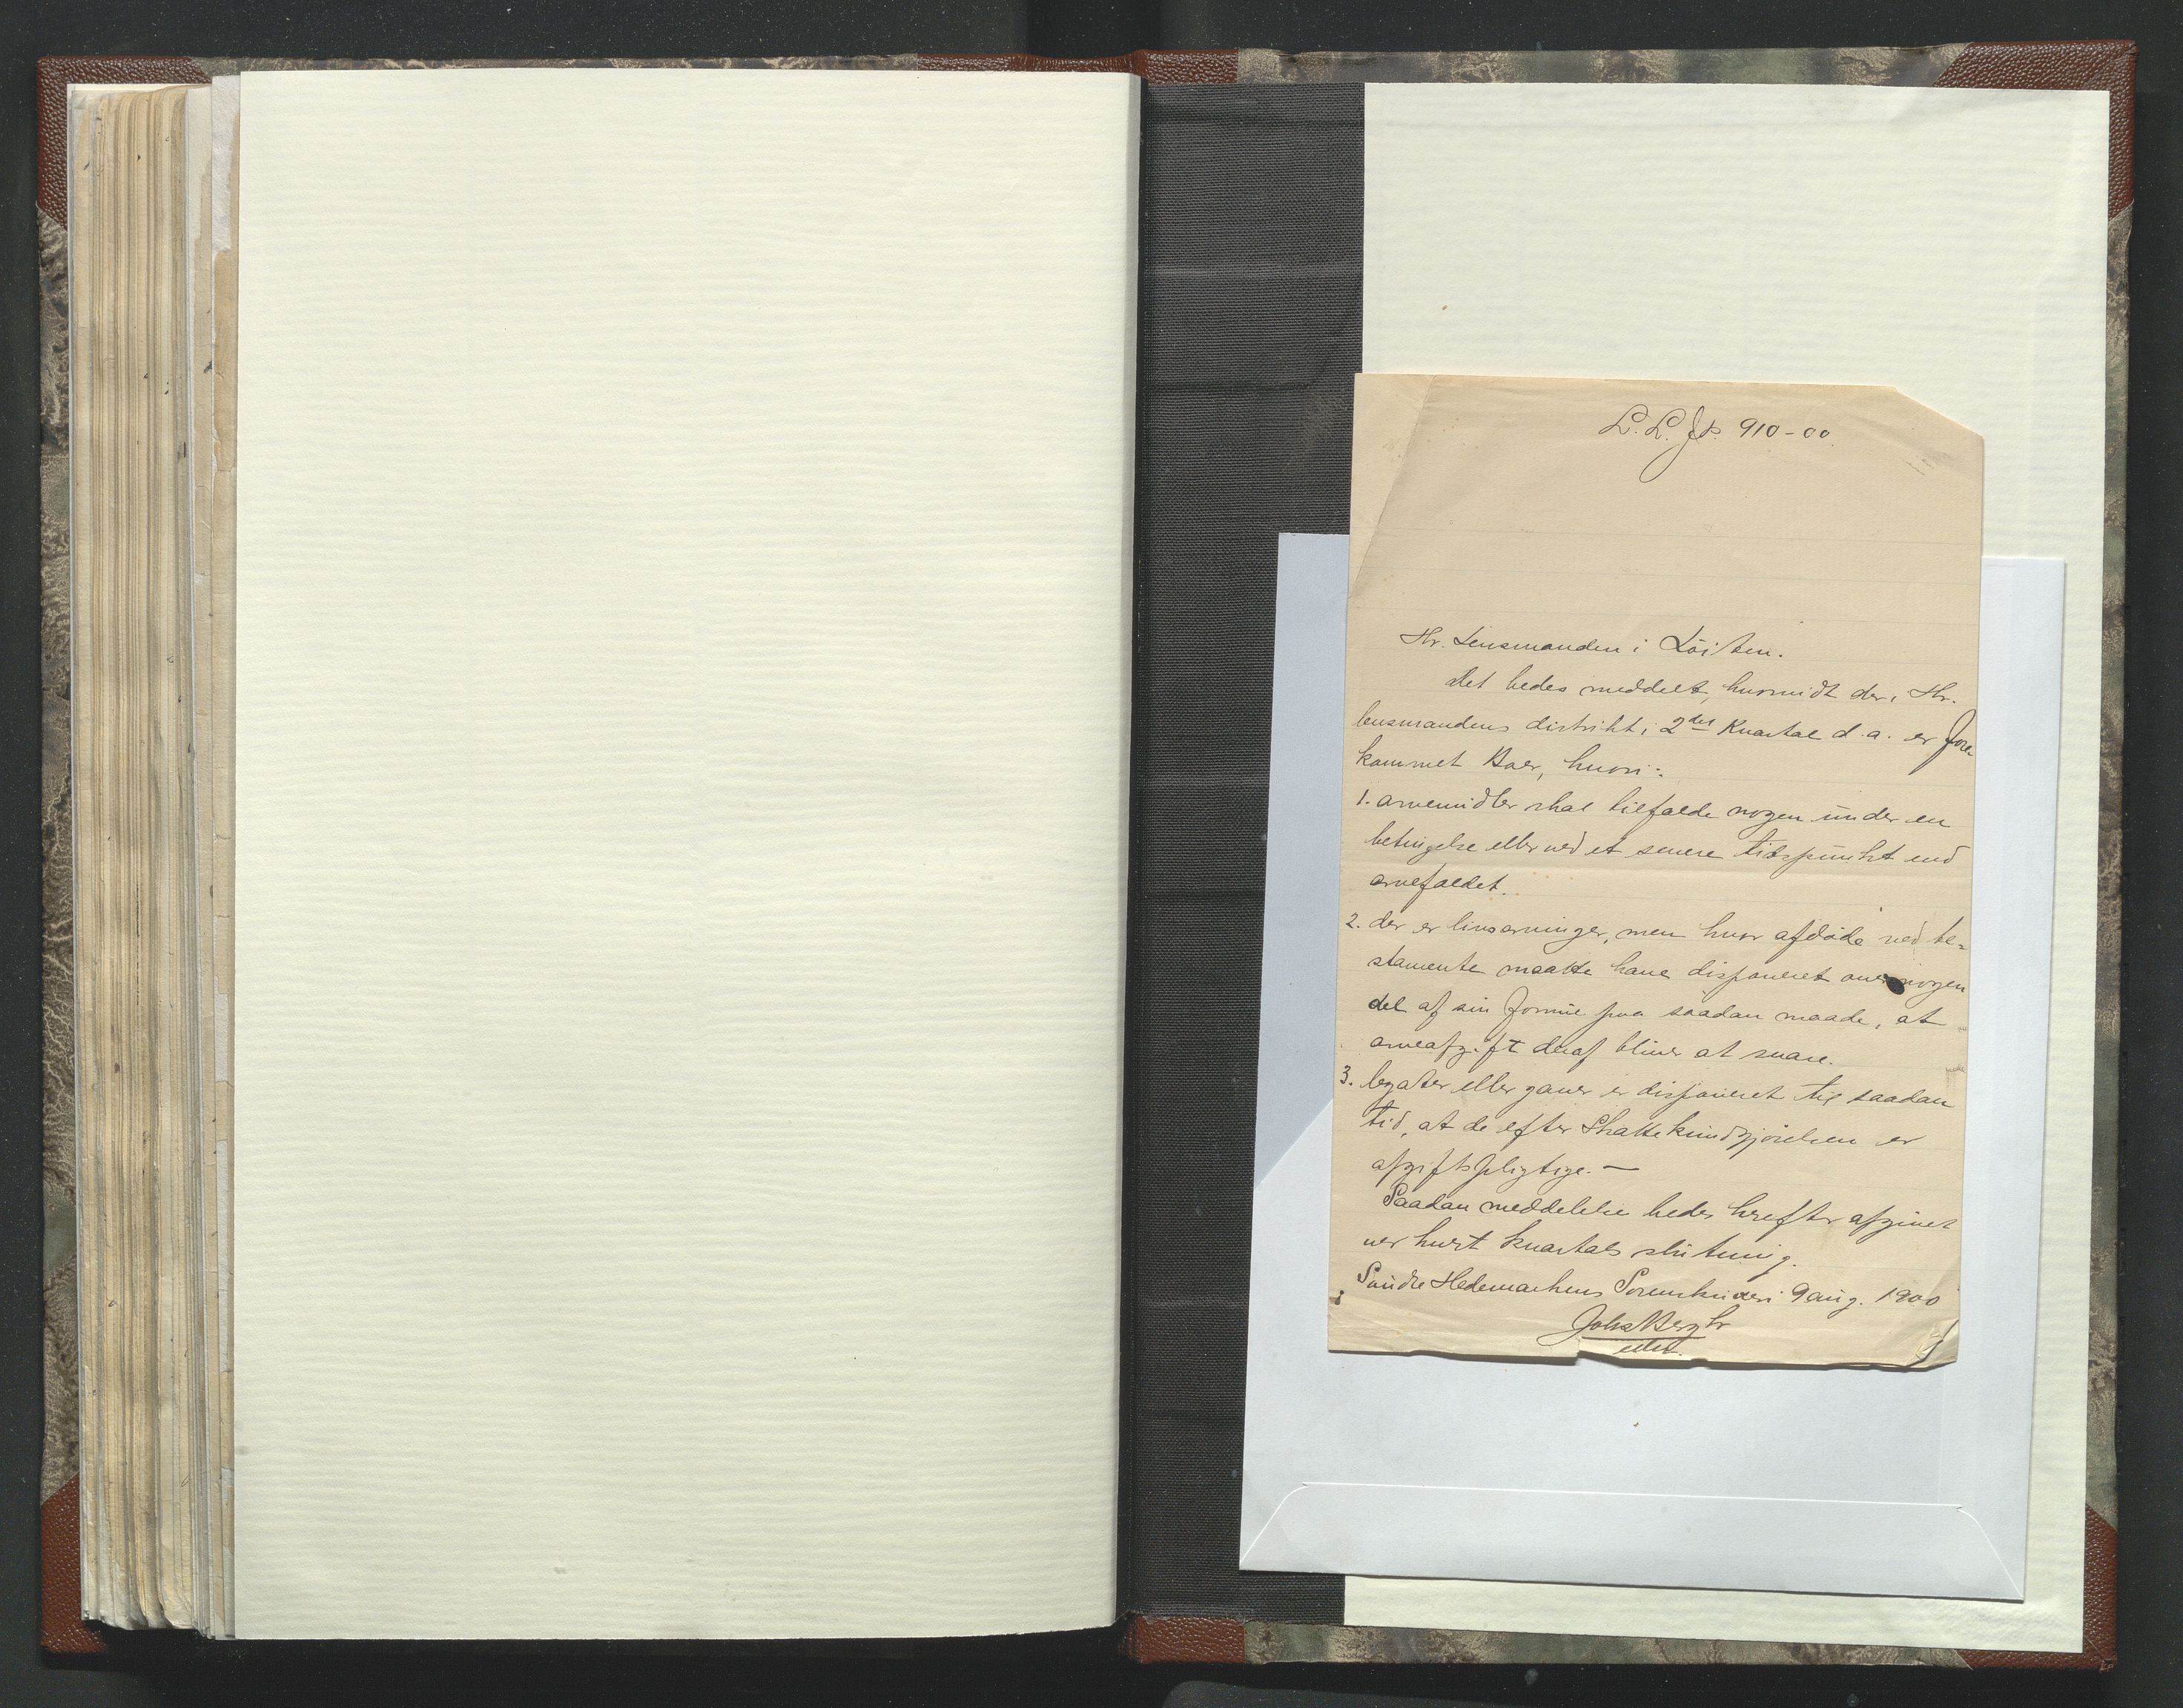 L. L. Jp. 910-00.
Hr. Lensmanden i Löiten.
Det bedes meddelt, hvorvidt der i Hr.
lensmandens distrikt i 2det Kvartal d. a. er fore-
kommet Boer, hvori:
1. arvemidler skal tilfalde nogen under en
betingelse eller ved et senere tidspunkt end
arvefaldet.
2. der er livsarvinger, men hvor afdøde ved te-
stamente maatte have disponeret over nogen
del af sin formue paa saadan maade, at
arveafgift deraf bliver at svare.
3. legater eller gaver er disponeret til saadan
tid, at de efter Skattekundgjörelsen er
afgiftspligtige. —
Saadan meddelelse bedes herefter afgivet
ved hvert kvartals slutning.
Søndre Hedemarkens Sorenskriveri 9 aug. 1900
Johs Bergh